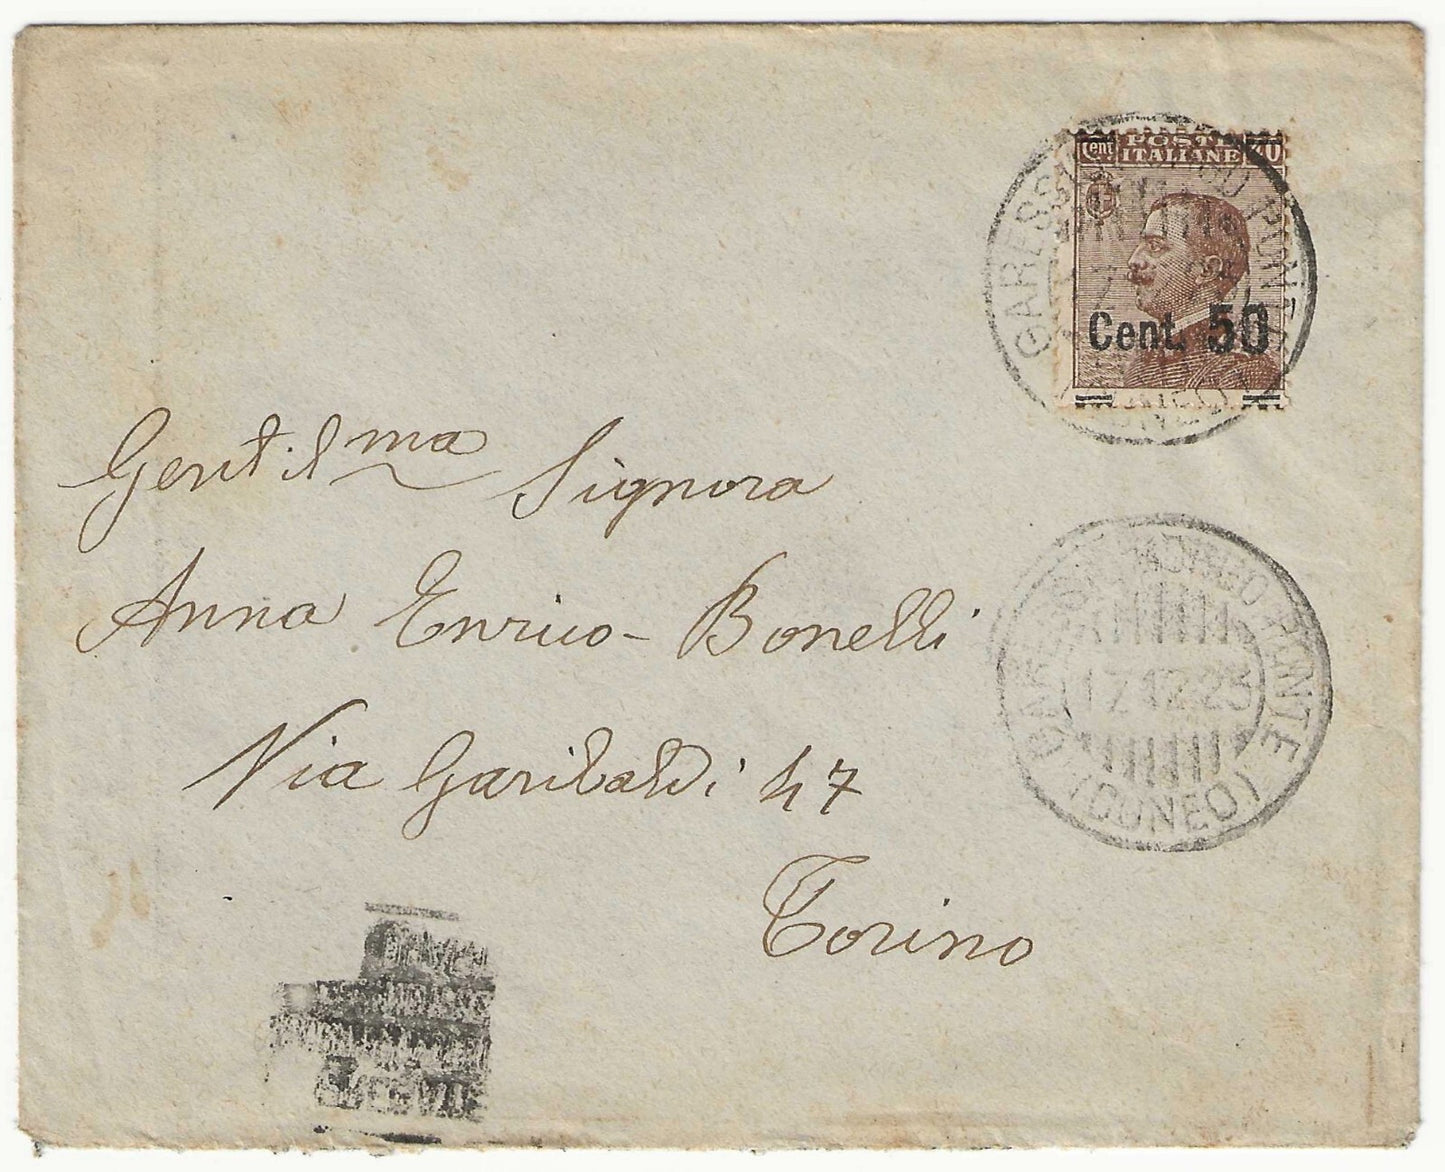 Cent POSTE 40
ITALIANE
Cent. 50
GARESSIO BORGO PONTE
(CUNEO)
Gentil.ma Signora
Anna Enrico-Bonelli
GARESSIO BORGO PONTE
17.12.23
(CUNEO)
Via Garibaldi 47
Torino